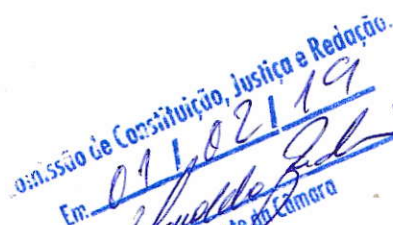 omissão de Constituição, Justiça e Redação.
Em 01 / 02 / 19
te da Câmara